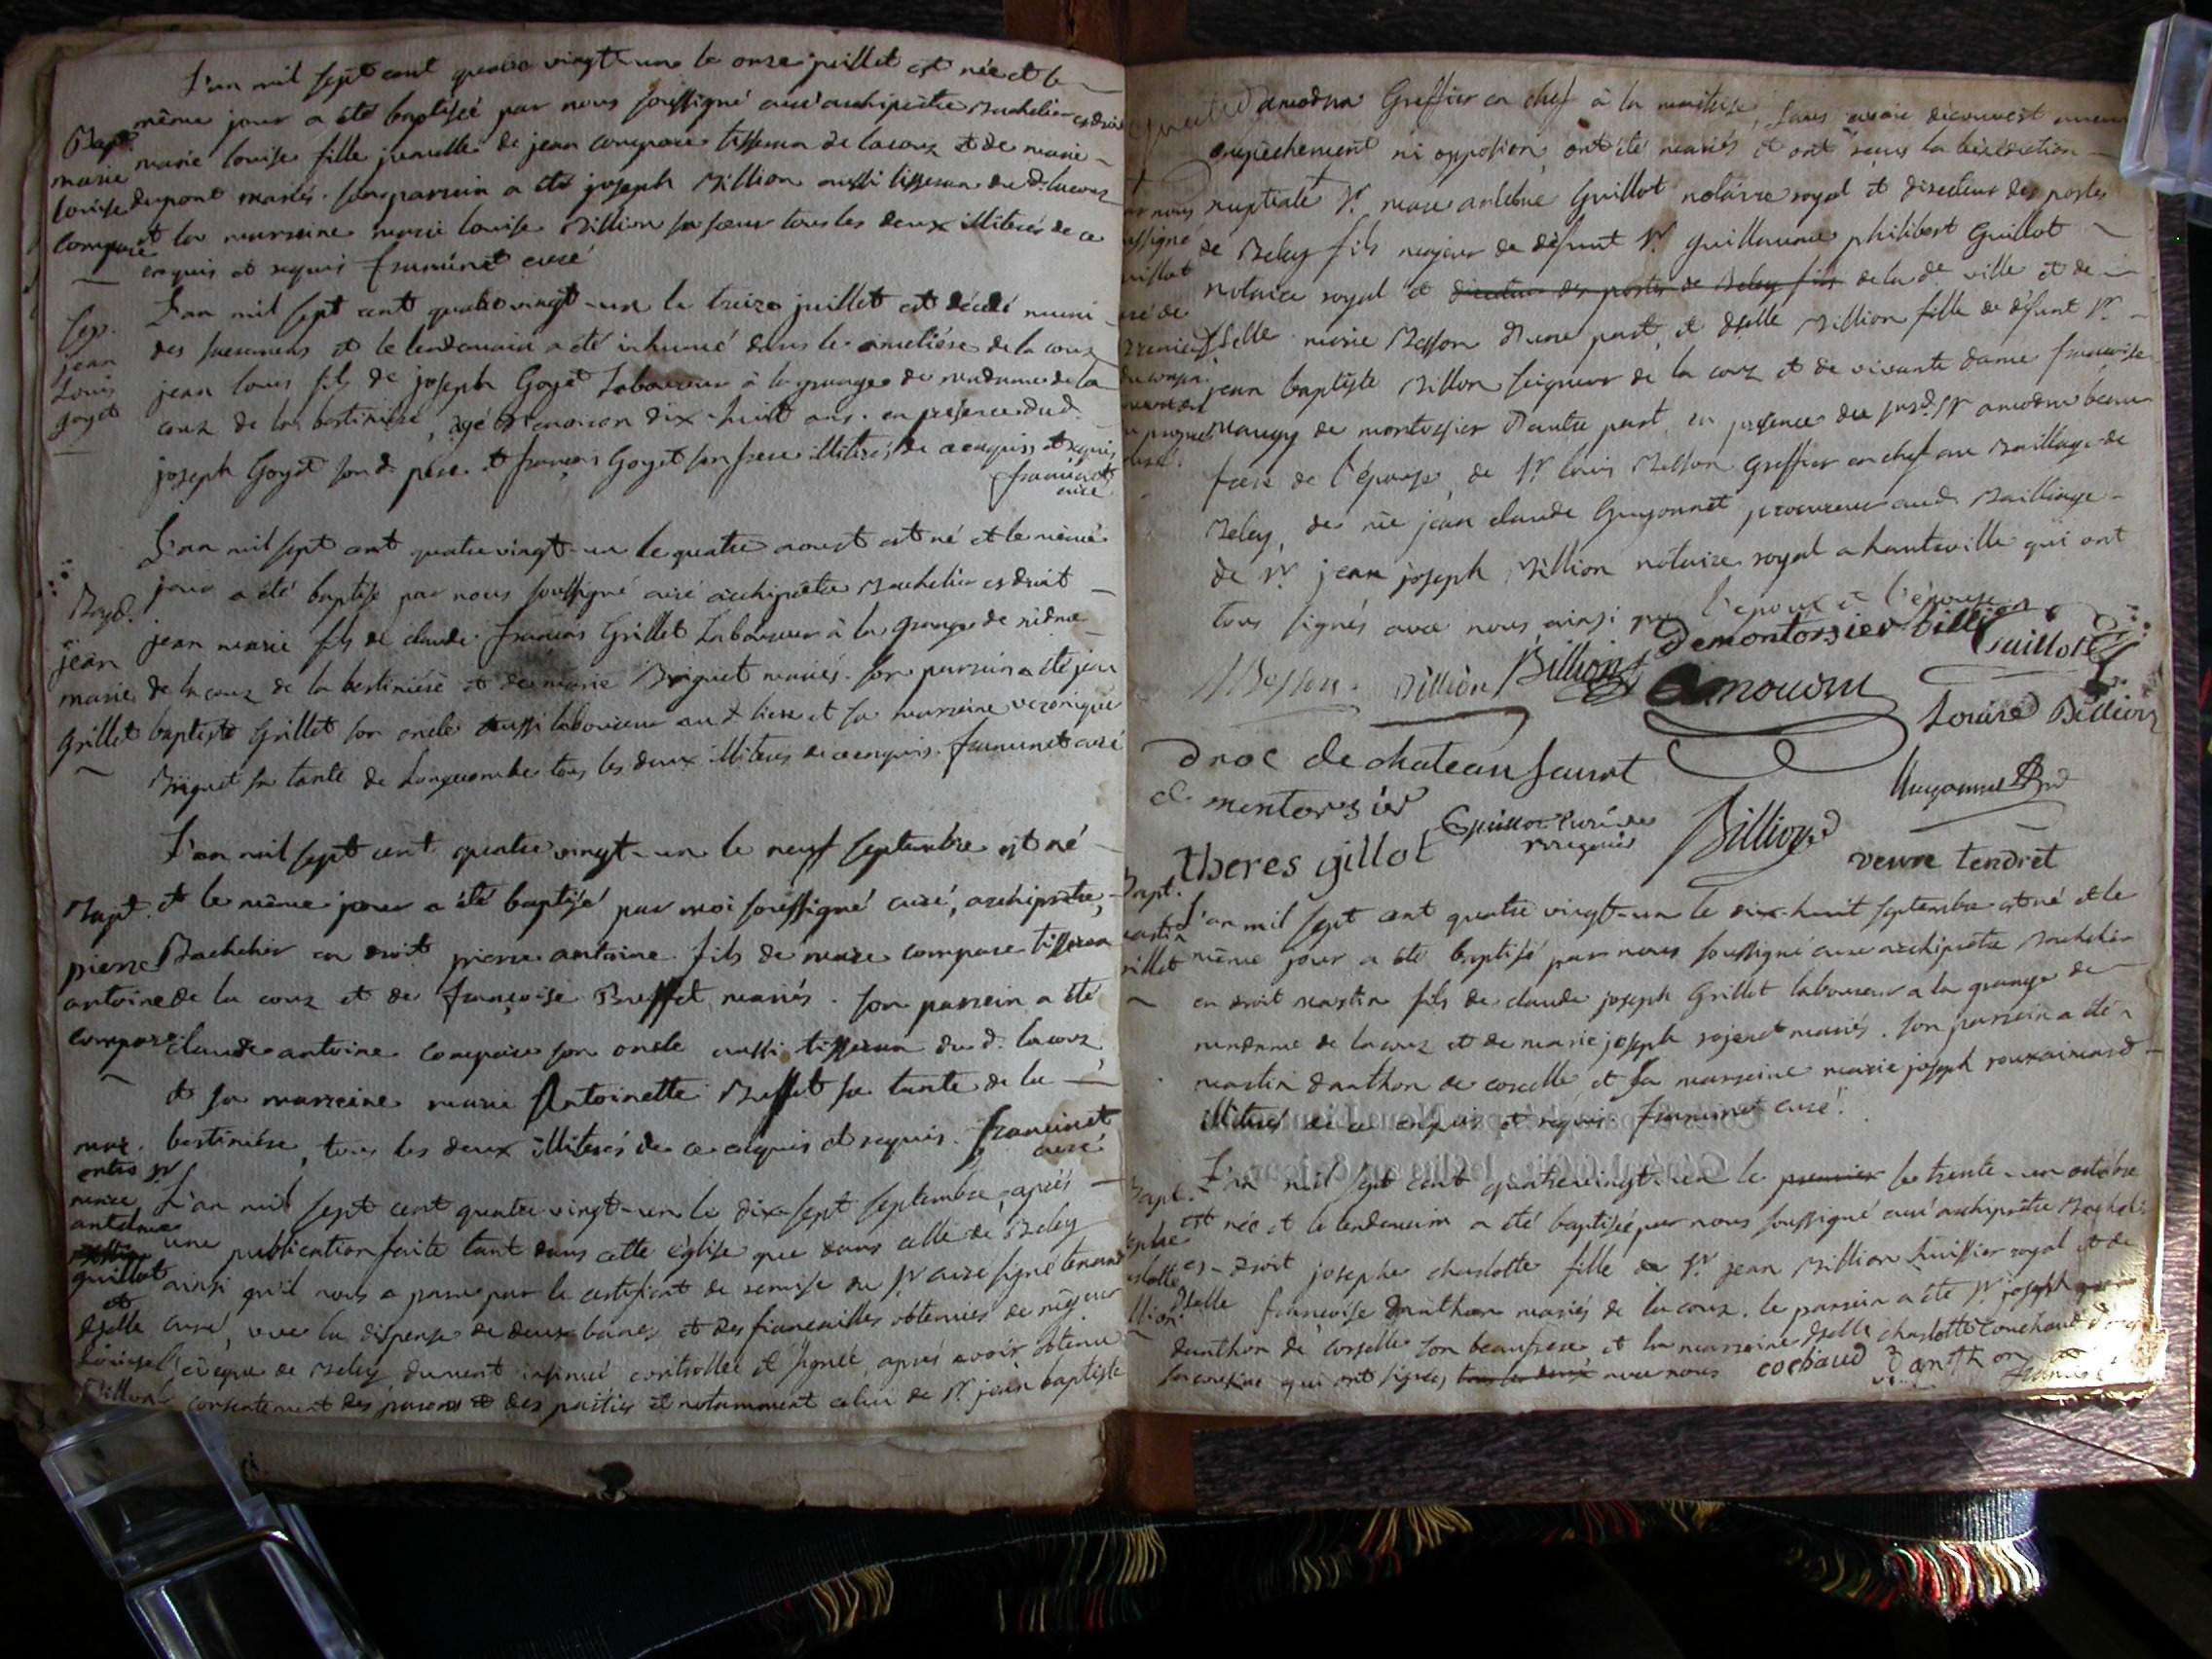 L'an mil sept cent quatre vingt-un le onze juillet est née et le
même jour a été baptisée par nous soussigné curé archiprêtre Bachelier es droit
Bapt.
marie louise fille jumelle de jean compare tisseran de lacoux et de marie
marie
dupont mariés. son parrein a été joseph Billion aussi tisseran du d. lacoux
louise
et la marreine marie louise Billion sa soeur tous les deux illiterés de ce
compare
enquis et requis framinet curé
L'an mil sept cent quatre vingt-un le treize juillet est décédé muni
Sep.
des sacremens et le lendemain a été inhumé dans le cimetiére de la coux
jean
jean louis fils de joseph Goyet Laboureur à la grange de madame de la
Louis
coux de la bertiniére, agé d'environ dix-huit ans. en présence dud.
goyet
joseph Goyet son d. pere et françois Goyet son frere illiterés de ce enquis et requis
framinet
curé
L'an mil sept cent quatre vingt-un le quatre aoust est né et le même
jour a été baptisé par nous soussigné curé archiprêtre Bachelier es droit
Bapt.
jean marie fils de claude françois Grillet Laboureur à la grange de
jean
marie
de la coux de la bertiniére et de marie Briguet mariés. son parrein a été jean
Grillet
baptiste Grillet son oncle aussi laboureur aud. lieu et sa marreine veronique
Briguet sa tante de Longecombe tous les deux illiterés de ce enquis. framinet curé
L'an mil sept cent quatre vingt-un le neuf septembre est né
Bapt.
et le même jour a été baptisé par moi soussigné curé, archiprêtre,
pierre
Bachelier en droit pierre antoine fils de marc compare tisseran
antoine
de la coux et de françoise Buffet mariés. son parrein a été
compare
claude antoine compare son oncle aussi tisseran du d. lacoux
et sa marreine marie Antoinette Buffet sa tante de la
bertiniére, tous les deux illiterés de ce enquis et requis. framinet
curé
mar.
entre sr.
marc
L'an mil sept cent quatre vingt-un le dix-sept septembre, après
antelme
une publication faite tant dans cette église que dans celle de Beley
guillot
ainsi qu'il nous a paru par le certificat de remise du sr. curé signé
et
dselle
curé, vue la dispense de deux bancs et des fiancailles obtenues de msgneur
Louise
l'évêque de Beley dument insinué controllée et signée, après avoir obtenu
Billion
le consentement des parens et des parties et notamment celui de sr. jean baptiste
amodru Greffier en chef à la maitrise, sans avoir découvert aucun
empêchement ni opposion, ont été mariés et ont reçus la bénédiction
nuptiale sr. marc antelme Guillot notaire royal et directeur des postes
de Beley fils majeur de défunt sr. Guillaume philibert Guillot
notaire royal et directeur des postes de Beley fils de la de. ville et de
dselle marie Besson d'une part, et dselle Billion fille de défunt sr.
jean baptiste Billon seigneur de la coux et de vivante dame françoise
maugy de montorsier d'autre part, en présence du susd. sr. amodru beau
frere de l'épouse, de sr. louis Besson Greffier en chef au Baillage de
Beley, de me jean claude Guyonnet procureur aud. Baillage
de sr. jean joseph Billion notaire royal a hauteville qui ont
tous signés avec nous ainsi que l'époux et l'épouse
Besson
Billion
Billion
demontorsier billion
Guillot
amodru
Louise Billion
droc de chateau
de montorsier
Guyonnet
theres gillot
Guillot curé de
Billion
veuve tendret
Bapt.
L'an mil sept cent quatre vingt-un le dix-huit septembre est né et le
même jour a été baptisé par nous soussigné curé archiprêtre Bachelier
en droit martin fils de claude joseph Grillet laboureur a la grange de
madame de lacoux et de marie joseph mariés. son parrein a été
martin danthon de corcelle et sa marreine marie joseph
illiterés de ce enquis et requis framinet curé.
Bapt.
L'an mil sept cent quatre vingt-un le premier le trente-un octobre
est née et le lendemain a été baptisée par nous soussigné curé archiprêtre Bacheli
es-droit josephe charlotte fille de sr. jean Billion huissier royal et de
dselle françoise danthon mariés de la coux. le parrein a été sr. joseph
danthon de corselle son beaufrere et la marreine dselle charlotte
sa cousine qui ont signés tous les deux avec nous cochaud danthon